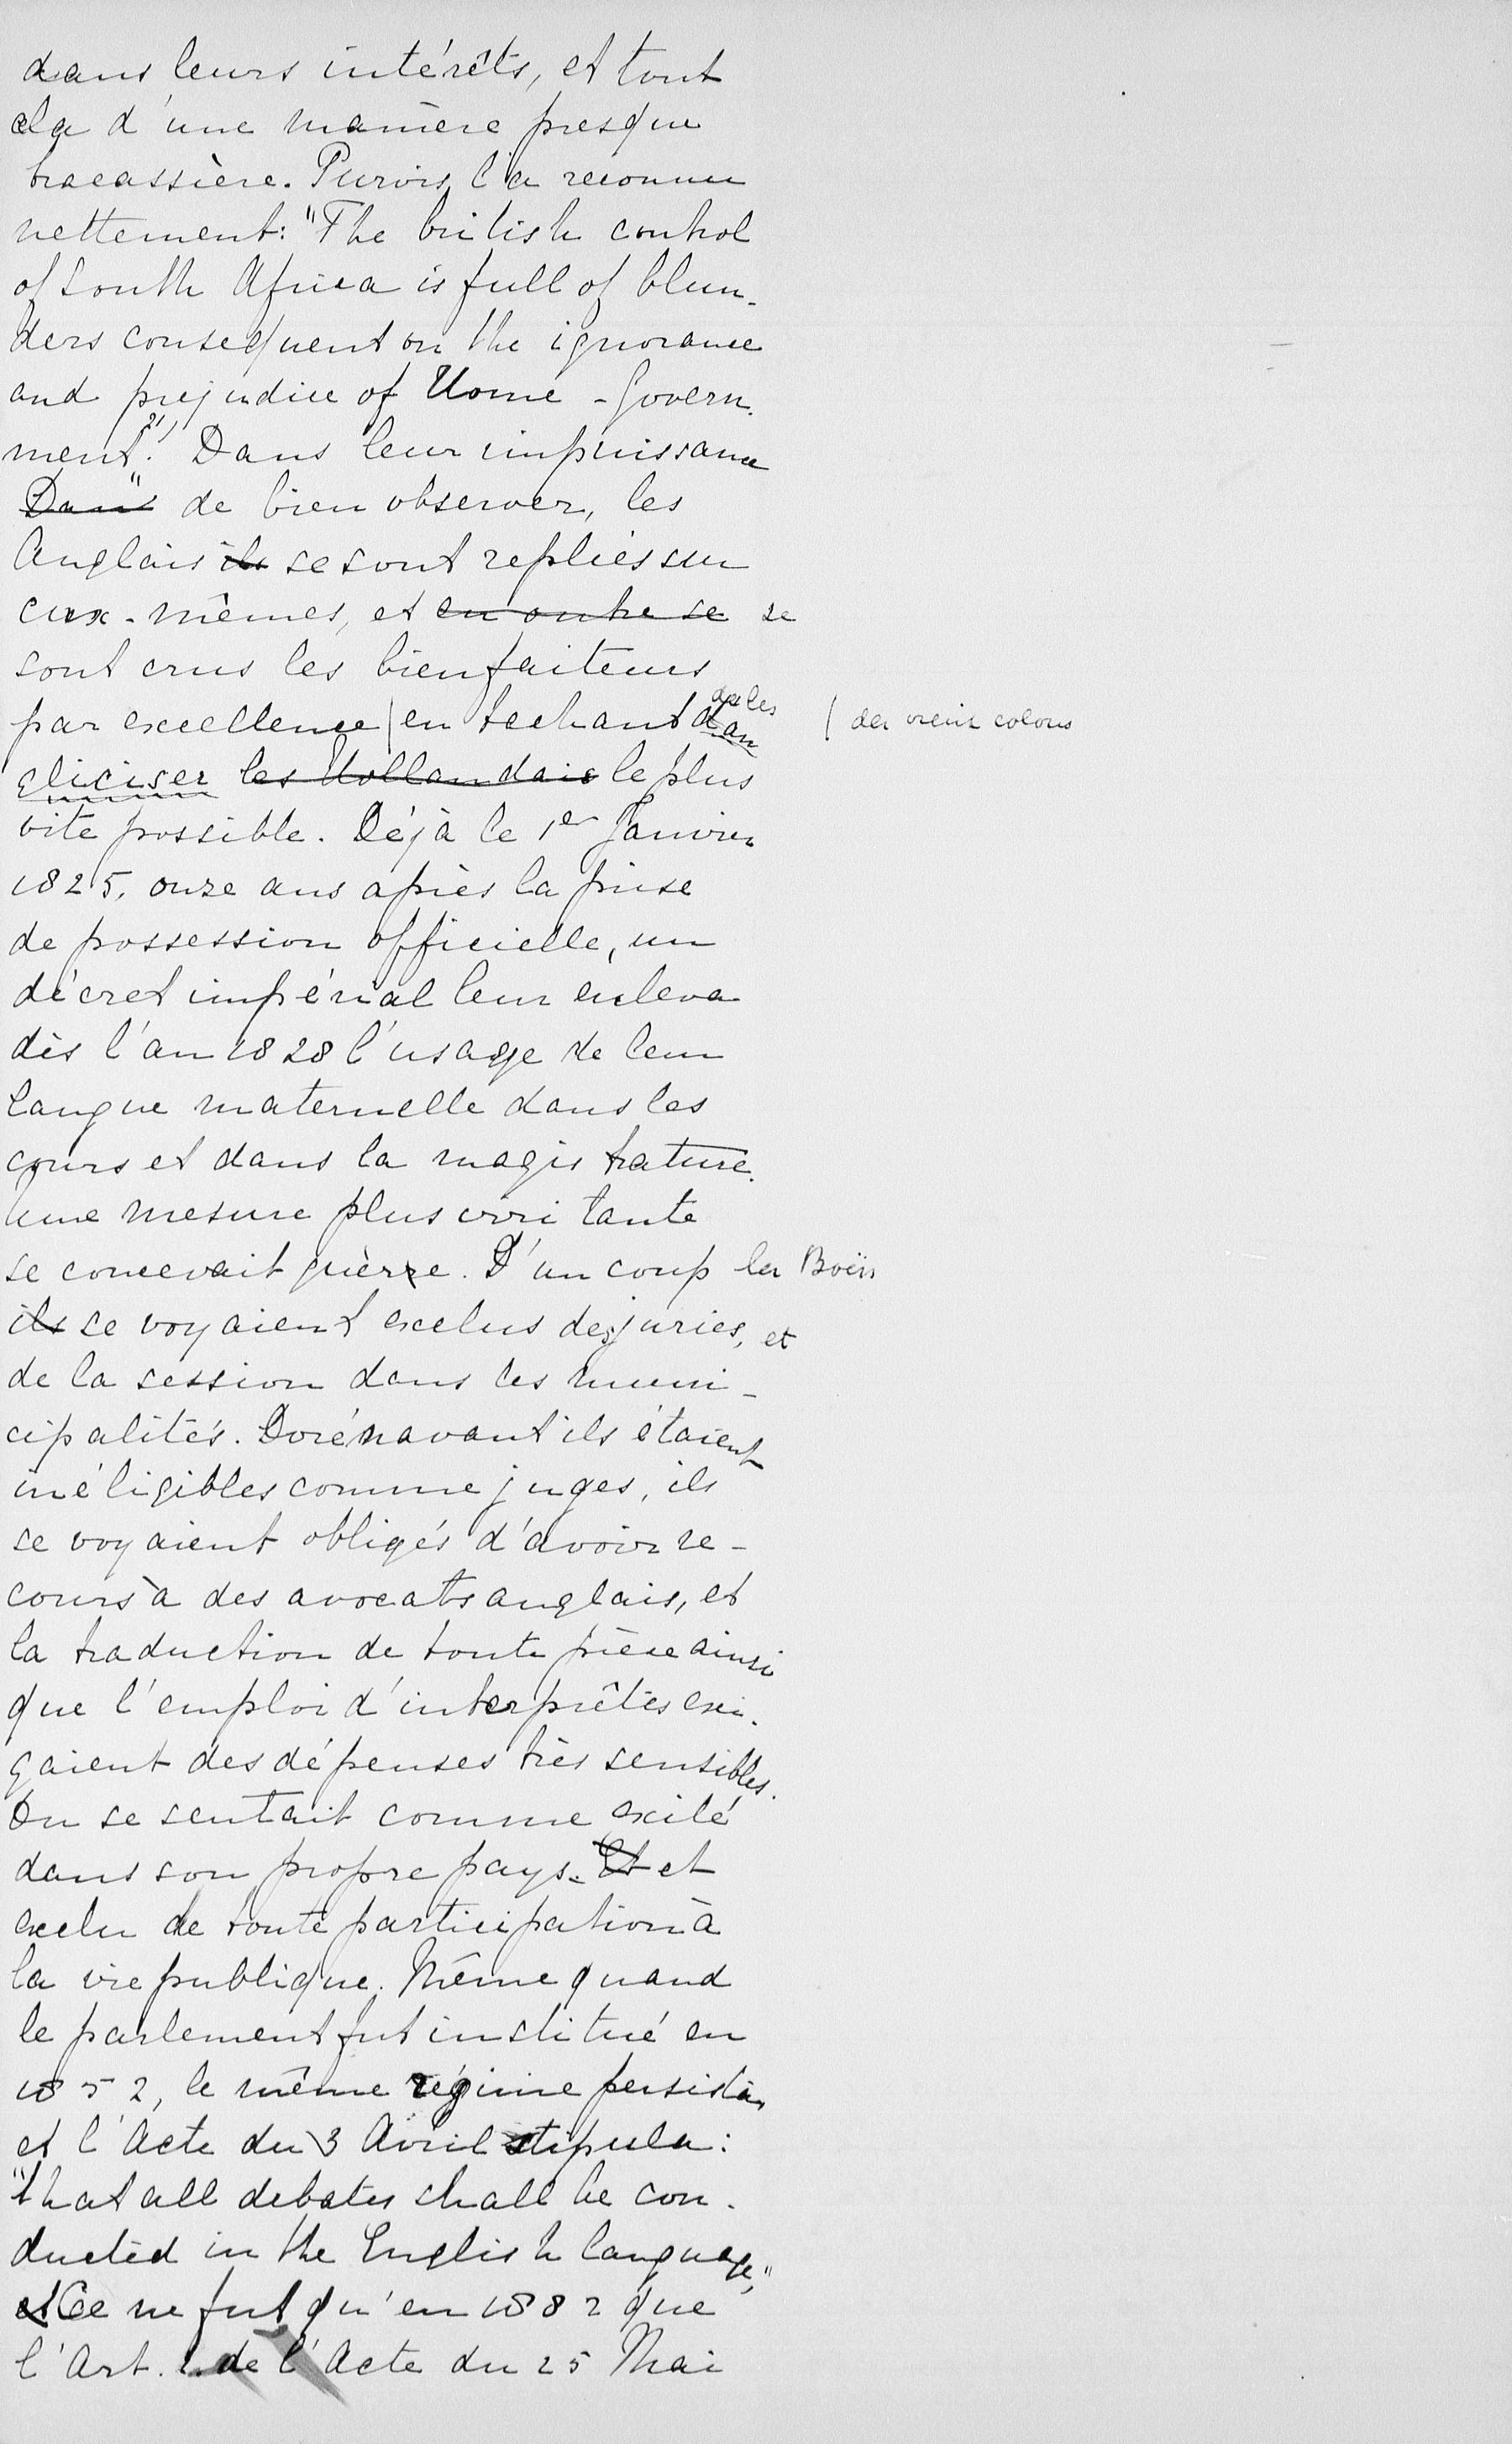 dans leurs intérêts, et tout
cela d'une manière presque
tracassière. Purvis l'a reconnu
nettement: "The british control
of South Africa is full of blun-
ders consequent on the ignorance
and prejudice of Home-Govern-
ment". 2) Dans leur impuissance
Dans de bien observer, les
Anglais ils se sont repliés sur
eux-mêmes, et en outre se se
sont crus les bienfaiteurs
par excellence / en tâchant de les d'an
/ des vieux colons
gliciser les Hollandais le plus
vite possible. Déjà le 1er Janvier
1825, onze ans après la prise
de possession officielle, un
décret impérial leur enleva
dès l'an 1828 l'usage de leur
langue maternelle dans les
cours et dans la magistrature.
Une mesure plus irritante
se concevait guère. D'un coup les Boërs
ils se voyaient exclus des juries, et
de la session dans les muni-
cipalités. Dorénavant ils étaient
inéligibles comme juges, ils
se voyaient obligés d'avoir re-
cours à des avocats anglais, et
la traduction de toute pièce ainsi
que l'emploi d'interprêtes exi-
gaient des dépenses très sensibles.
On se sentait comme exilé
dans son propre pays. Et et
exclu de toute participation à
la vie publique. Même quand
le parlement fut institué en
1852, le même régime persista,
et l'Acte du 3 Avril stipula:
"that all debates shall be con-
ducted in the English language,"
et Ce ne fut qu'en 1882 que
l'Art. 1. de l'Acte du 25 Mai